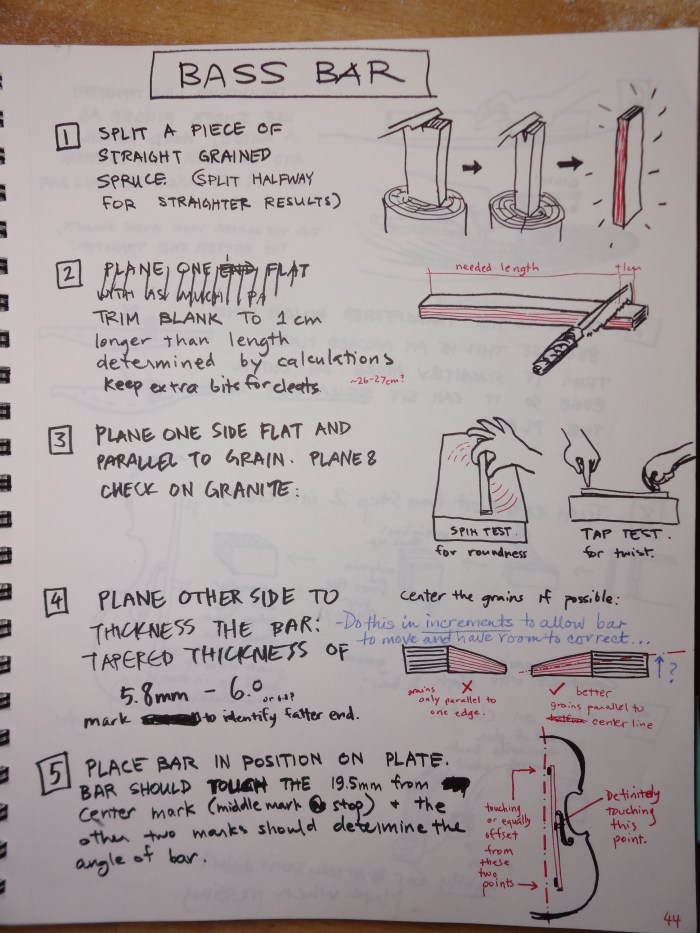 BASS BAR
1 SPLIT A PIECE OF
STRAIGHT GRAINED
SPRUCE. (SPLIT HALFWAY
FOR STRAIGHTER RESULTS)
2 PLANE ONE END FLAT
WITH AS MUCH
TRIM BLANK TO 1 cm
longer than length
determined by calculations
Keep extra bits for cleats
~26-27cm?
needed length
+1cm
3 PLANE ONE SIDE FLAT AND
PARALLEL TO GRAIN. PLANE &
CHECK ON GRANITE:
SPIN TEST.
for roundness
TAP TEST.
for twist.
4 PLANE OTHER SIDE TO
THICKNESS THE BAR:
TAPERED THICKNESS OF
5.8mm - 6.0
mark to identify fatter end.
center the grains if possible:
-Do this in increments to allow bar
to move and have room to correct...
?
grains
only parallel to
one edge.
✓ better
grains parallel to
center line
5 PLACE BAR IN POSITION ON PLATE.
BAR SHOULD TOUCH THE 19.5mm from
center mark (middle mark @ stop) + the
other two marks should determine the
angle of bar.
touching
or equally
offset
from
these
two
points
Definitely
touching
this
point.
44